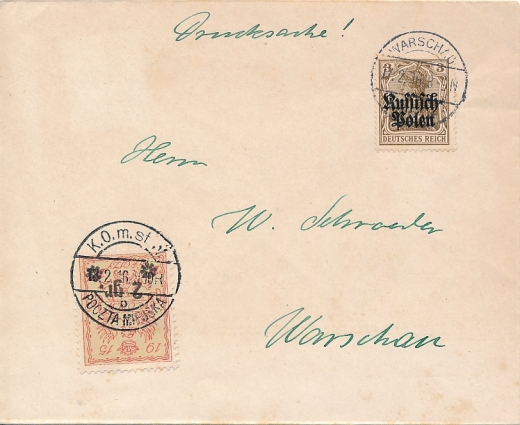 Drucksache!
WARSCHAU
3 3
Russisch-
Polen
DEUTSCHES REICH
Herrn
W. Schroeder
Warschau
K.O.m.st.W.
POCZTA MIEJSKA
19 15